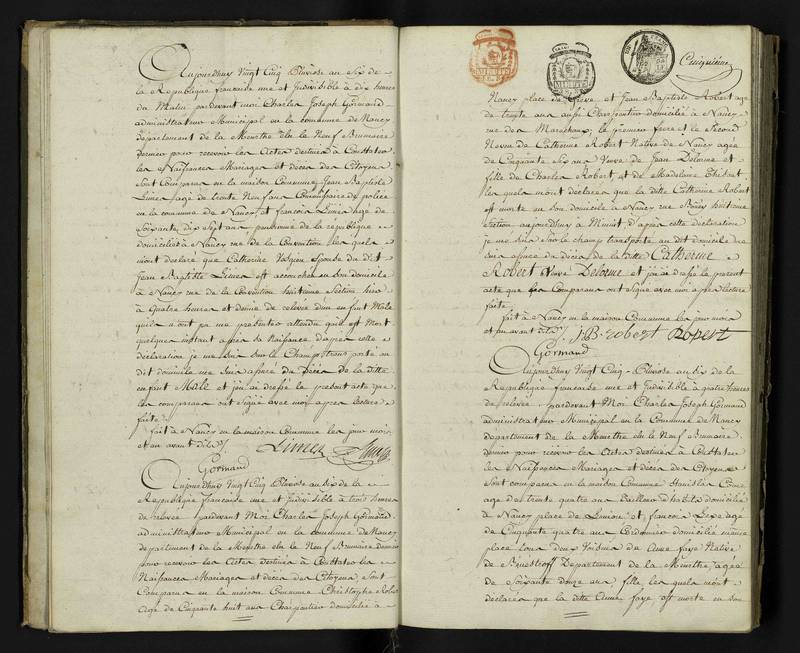 Aujourdhuy Vingt Cinq Pluviose an Six de
la Republique française une et Indivisible à dix heures
du Matin pardevant moi Charles Joseph Gormand
administrateur Municipal en la commune de Nancy
departement de la Meurthe élu le Neuf Brumaire
dernier pour recevoir les Actes destinés à Constater
les Naissances Mariages et décès des Citoyens
Sont Comparus en la maison Commune Jean Baptiste
Limer agé de trente Neuf ans Commissaire de police
en la commune de Nancy et francois Limer agé de
Soixante dix Sept ans pensionné de la republique
domiciliés à Nancy rue de la Convention les quels
m'ont declaré que Catherine Epouse du dit
Jean Baptiste Limer est accouchée en Son domicile
à Nancy rue de la Convention huitieme Section hier
à quatre heures et demie de relevée d'un enfant Male
qu'ils n'ont pu me presenter attendu qu'il est Mort
quelques instant apres sa Naissance d'apres cette
declaration je me suis Sur le Champ transporté au
dit domicile me suis assuré du Décés de la ditte
enfant Male et j'ai dressé le present acte que
les comparans ont Signé avec moi apres lecture
faite
fait à Nancy en la maison Commune les jour mois
et an avant dits
Limer
Gormand
Aujourdhuy Vingt Cinq Pluviose an Six de la
Republique française une et Indivisible à trois heures
de relevée pardevant Moi Charles Joseph Gormand
administrateur Municipal en la commune de Nancy
departement de la Meurthe élu le Neuf Brumaire dernier
pour recevoir les Actes destinés à Constater les
Naissances Mariages et décès des Citoyens, Sont
Comparus en la maison Commune Christophe Robert
Agé de Cinquante huit ans Charpentier domicilié à
Cinquième
Nancy place de Greve et Jean Baptiste Robert agé
de trente ans aussi Charpentier domicilié à Nancy
rue des Marechaux le premier frere et le Second
Neveu de Catherine Robert Native de Nancy agée
de Cinquante Six ans Veuve de Jean Delorme et
fille de Charles Robert et de Madelaine Thiriet
les quels m'ont déclaré que la ditte Catherine Robert
est morte en son domicile à Nancy rue huitieme
Section aujourdhuy à Minuit d'après cette déclaration
je me suis Sur le champ transporté au dit domicile me
suis assuré du décès de la ditte Catherine
Robert Veuve Delorme et j'ai dressé le present
acte que les Comparans ont Signé avec moi apres lecture
faite
fait à Nancy en la maison Commune les jour mois
et an avant dits J.B. robert Robert
Gormand
Aujourdhuy Vingt Cinq Pluviose an Six de la
Republique française une et Indivisible à quatre heures
de relevée pardevant Moi Charles Joseph Gormand
administrateur Municipal en la Commune de Nancy
departement de la Meurthe élu le Neuf Brumaire
dernier pour recevoir les Actes destinés à Constater
les Naissances Mariages et décès des Citoyens
Sont comparus en la maison Commune Stanislas
agé de trente quatre ans tailleur d'habits domicilié
à Nancy place de et françois agé
de Cinquante quatre ans Cordonnier domicilié même
place tous deux Voisins de Anne faye Native
de Département de la Meurthe, agée
de Soixante douze ans fille les quels m'ont
declaré que la ditte Anne faye est morte en son